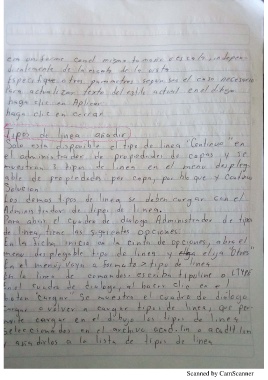 con uniforme con el mismo tamaño de texto independientemente de la escala de la vista
Especifique otros parámetros según sea el caso necesario
Para actualizar texto del estilo actual en el dibujo
haga clic en Aplicar
haga clic en cerrar
Tipos de linea añadir
Solo esta disponible el tipo de linea "Continuo" en
el administrador de propiedades de capas y se
muestran 3 tipos de linea en el menu desple
gable de propiedades por capa, por bloque y Continuo
Solucion
Los demas tipos de linea se deben cargar con el
Administrador de tipos de linea.
Para abrir el cuadro de dialogo Administrador de tipos
de linea, tiene las siguientes opciones
En la ficha inicio de la cinta de opciones, abra el
menu desplegable tipo de linea y elija "Otros"
En el menu, vaya a formato > tipo de linea
En la linea de comandos escriba tipolin o LTYPE
En el cuadro de dialogo, al hacer clic en el
boton Cargar. Se muestra el cuadro de dialogo
Cargar o volver a cargar tipos de linea, que per
mite cargar en el dibujo los tipos de linea
seleccionados en el archivo acad.lin o acadiso.lin
y añadirlos a la lista de tipos de linea
Scanned by CamScanner